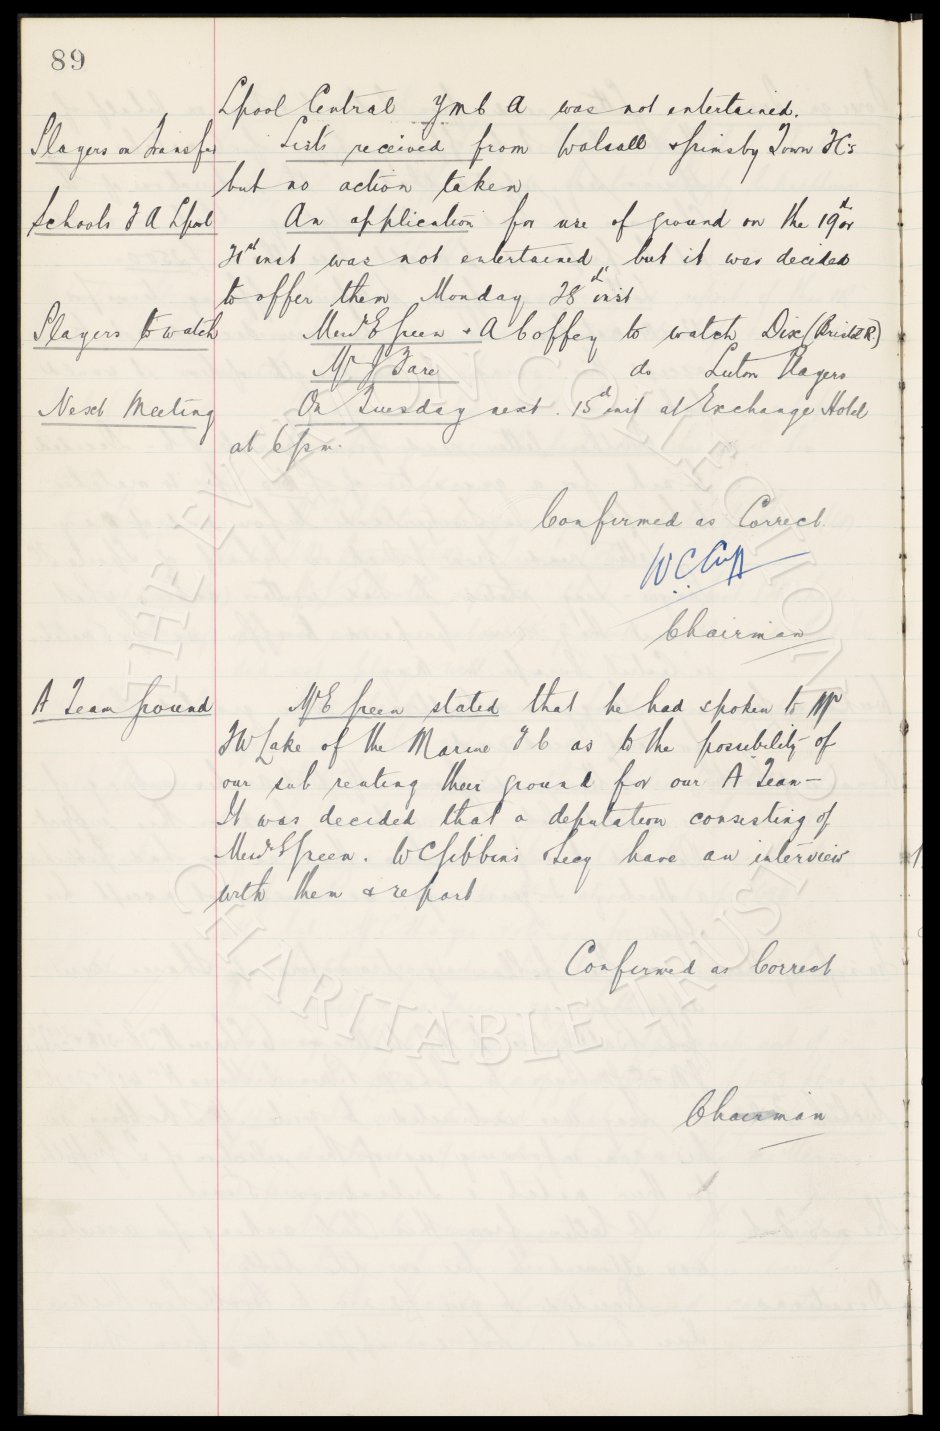 89
Lpool Central YMCA was not entertained.
Players on Transfer Lists received from Walsall & Grimsby Town FCs
but no action taken
Schools F A Lpool An application for use of ground on the 19th or
inst was not entertained but it was decided
to offer them Monday 28th inst
Players to watch Messrs E Green & A Coffey to watch Dix (Bristol R.)
Mr J Fare do Luton Players
Next Meeting On Tuesday next. 15th inst at Exchange Hotel
at 6 pm.
Confirmed as Correct.
W C Cuff
Chairman
A Team Ground Mr E Green stated that he had spoken to Mr
F W Lake of the Marine F C as to the possibility of
our sub renting their ground for our A Team—
It was decided that a deputation consisting of
Messrs E Green. W C Gibbins & Secy have an interview
with them & report
Confirmed as Correct
Chairman
© THE EVERTON COLLECTION
CHARITABLE TRUST